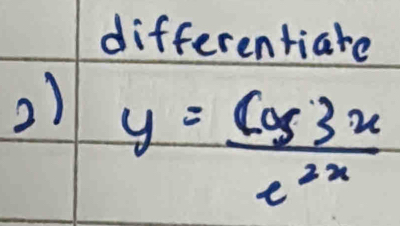 differentiate
2) y = Cos 3x / e^2x